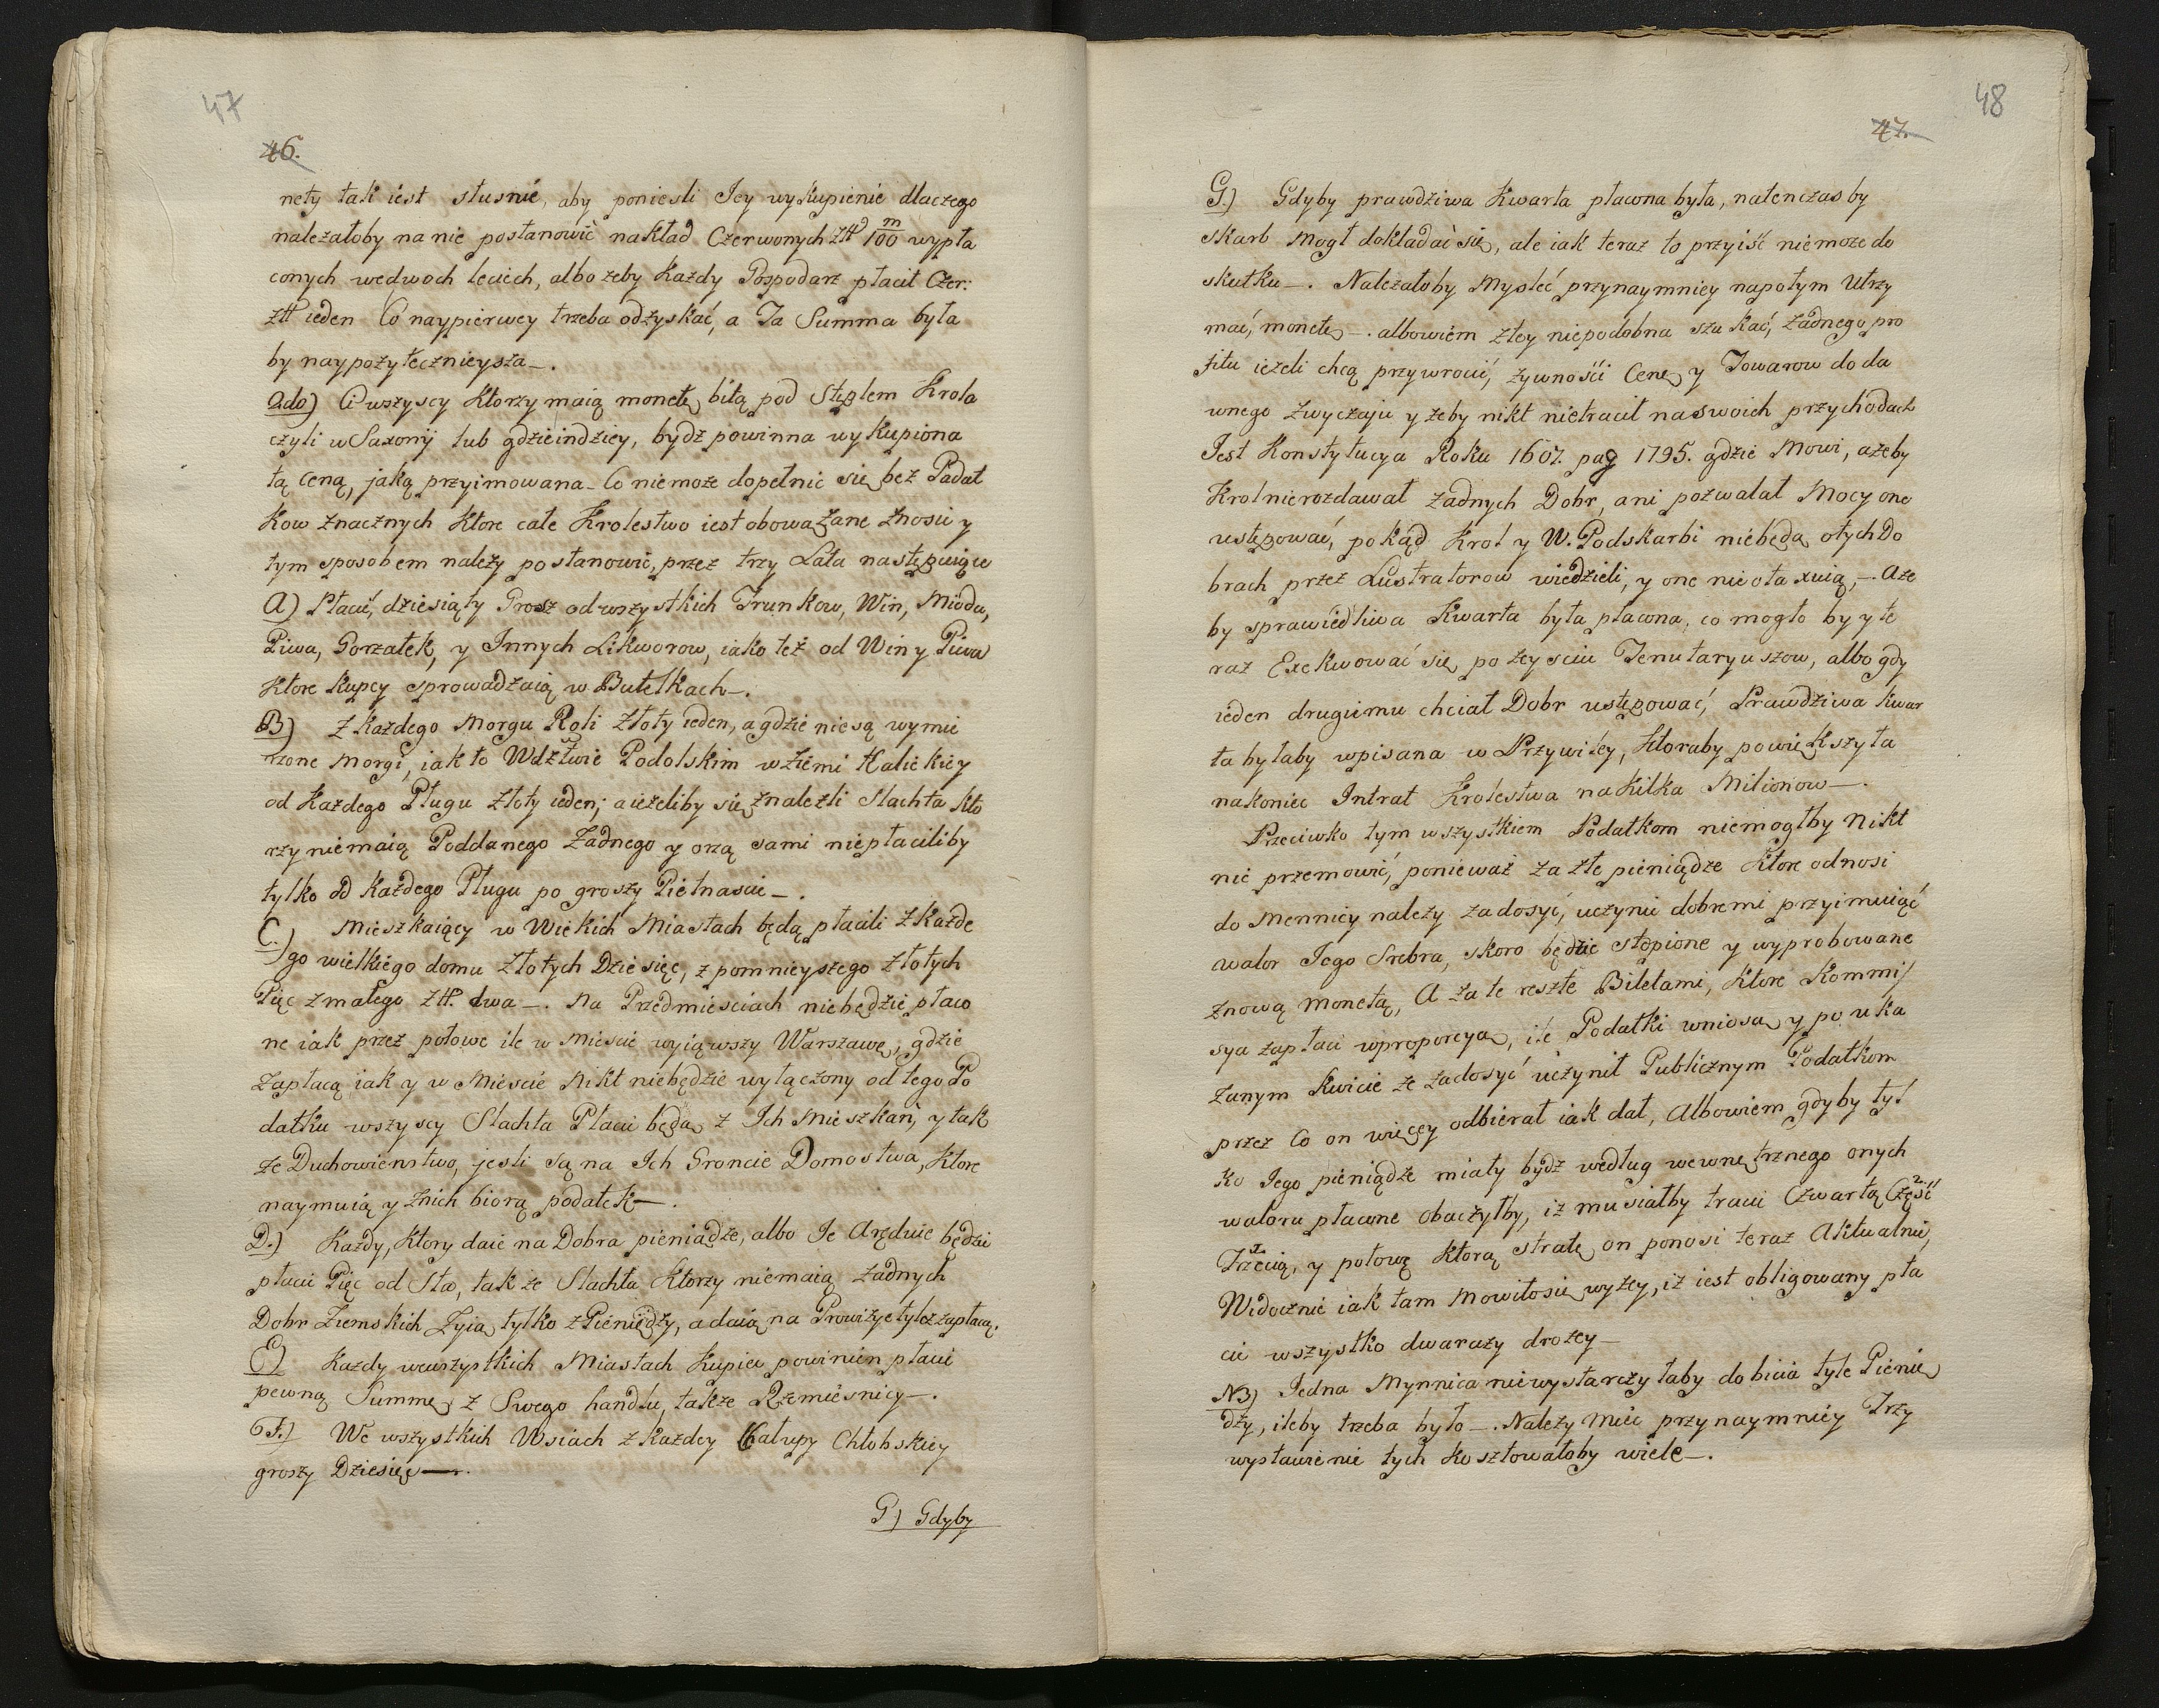 47
46.
nety tak iest słusnie, aby poniesli Jey wykupienie dlaczego
należałoby na nie postanowić nakład Czerwonych Złł m/100 wypła
conych wedwoch leciech, albo żeby każdy Gospodarz płacił Czer:
złł ieden Co naypierwey trzeba odzyskać, a Ta Summa była
by naypożytecznieysza—.
2do) Ci wszyscy Którzy maią monetę bitą pod Stęplem Krola
czyli w Saxonij lub gdzieindziey, bydź powinna wykupiona
tą ceną, jaką przyimowana—Co niemoże dopełnić się bez Padat
kow znacznych Ktore całe Krolestwo iest obowązane znosić y
tym sposobem należy postanowić, przez trzy Lata następuiące
A) Płacić, dziesiąty Grosz od wszystkich Trunkow, Win, Miodu,
Piwa, Gorzałek, y Innych Likworow, iako też od Win y Piwa
Ktore kupcy sprowadzaią w Butelkach—.
B) Z Każdego Morgu Roli Złoty ieden, a gdzie nie są wymie
rzone Morgi, iak to Wdztwie Podolskim w Ziemi Halickiey
od Każdego Pługu Złoty ieden; a ieżeliby się znalezli Slachta Kto
rzy niemaią Poddanego Żadnego y orzą sami niepłaciliby
tylko od Każdego Pługu po groszy Pietnascie—.
C.) Mieszkaiący w Wiekich Miastach będą płacili z Każde
go wielkiego domu Złotych Dziesięć, z pomnieyszego Złotych
Pięć z małego Złł. dwa—. Na Przedmiesciach niebędzie płaco
ne iak przez połowę ile w Miescie wyiąwszy Warszawę, gdzie
zapłacą iak y w Miescie Nikt niebędzie wyłączony od tego Po
datku wszyscy Slachta Płacić będą z Ich Mieszkań, y tak
że Duchowienstwo, jesli są na Ich Groncie Domostwa, Ktore
naymuią y z nich biorą podatek—.
D.) Każdy, Ktory daie na Dobra pieniądze, albo Je Aręduie będzie
płacić Pięć od Sta, także Slachta Ktorzy niemaią żadnych
Dobr Ziemskich Żyią tylko z Pieniędzy, a daią na Prowizye tyleż zapłacą.
E) Każdy wewszystkich Miastach Kupiec powinien płacić
pewną Summę z Swego handlu, także Rzemiesnicy—.
F.) We wszystkich Wsiach z każdey Chałupy Chłobskiey
groszy Dziesięć—.
G) Gdyby
48
47.
G.) Gdyby prawdziwa Kwarta płacona była, natenczas by
skarb Mogł dokładać się, ale iak teraz to przyiść niemoze do
skutku—. Należałoby Mysleć przynaymniey napotym Utrzy
mać, monetę—. albowiem złey niepodobna szukać, żadnego pro
fitu ieżeli chcą przywrocić, żywności Cenę y Towarow do da
wnego zwyczaju y żeby nikt nietracił na swoich przychodach
Jest Konstytucya Roku 1607. pag 1795. gdzie Mowi, ażeby
Krol nierozdawał żadnych Dobr, ani pozwalał Mocy one
ustępować, pokąd Krol y W. Podskarbi niebędą o tych Do
brach przez Lustratorow wiedzieli, y one nie otaxuią,—. Aże
by sprawiedliwa Kwarta była płacona, co mogło by y te
raz Exekwować się po zeysciu Tenutaryuszow, albo gdy
ieden drugiemu chciał Dobr ustępować, Prawdziwa Kwar
ta byłaby wpisana w Przywiley, Ktoraby powiększyła
nakoniec Intrat Krolestwa na Kilka Milionow—.
Przeciwko tym wszystkiem Podatkom niemogłby Nikt
nic przemowić, ponieważ za złe pieniądze Ktore odnosi
do Mennicy należy zadosyć, uczynić dobremi przyimuiąć
walor Jego Srebra, skoro będzie stopione y wyprobowane
znową Monetą, A za te resztę Biletami, Ktore Kommis
sya zapłaci wproporcyą, ile Podatki wniosą y po uka
zanym Kwicie że zadosyć uczynił Publicznym Podatkom
przez Co on więcey odbierał iak dał, Albowiem gdyby tyl
ko Jego pieniądze miały bydź według wewnętrznego onych
waloru płacone obaczyłby, iż musiałby tracić Czwartą Część
Trzecią, y połowę Ktorą stratę on ponosi teraz Aktualnie,
Widocznie iak tam Mowiło się wyżey, iż iest obligowany pła
cić wszystko dwa razy drożey—
NB) Jedna Mynnica niewystarczyłaby do bicia tyle Pienię
dzy, ileby trzeba było—. Należy Mieć przynaymniey Trzy
wystawienie tych Kosztowałoby wiele—.